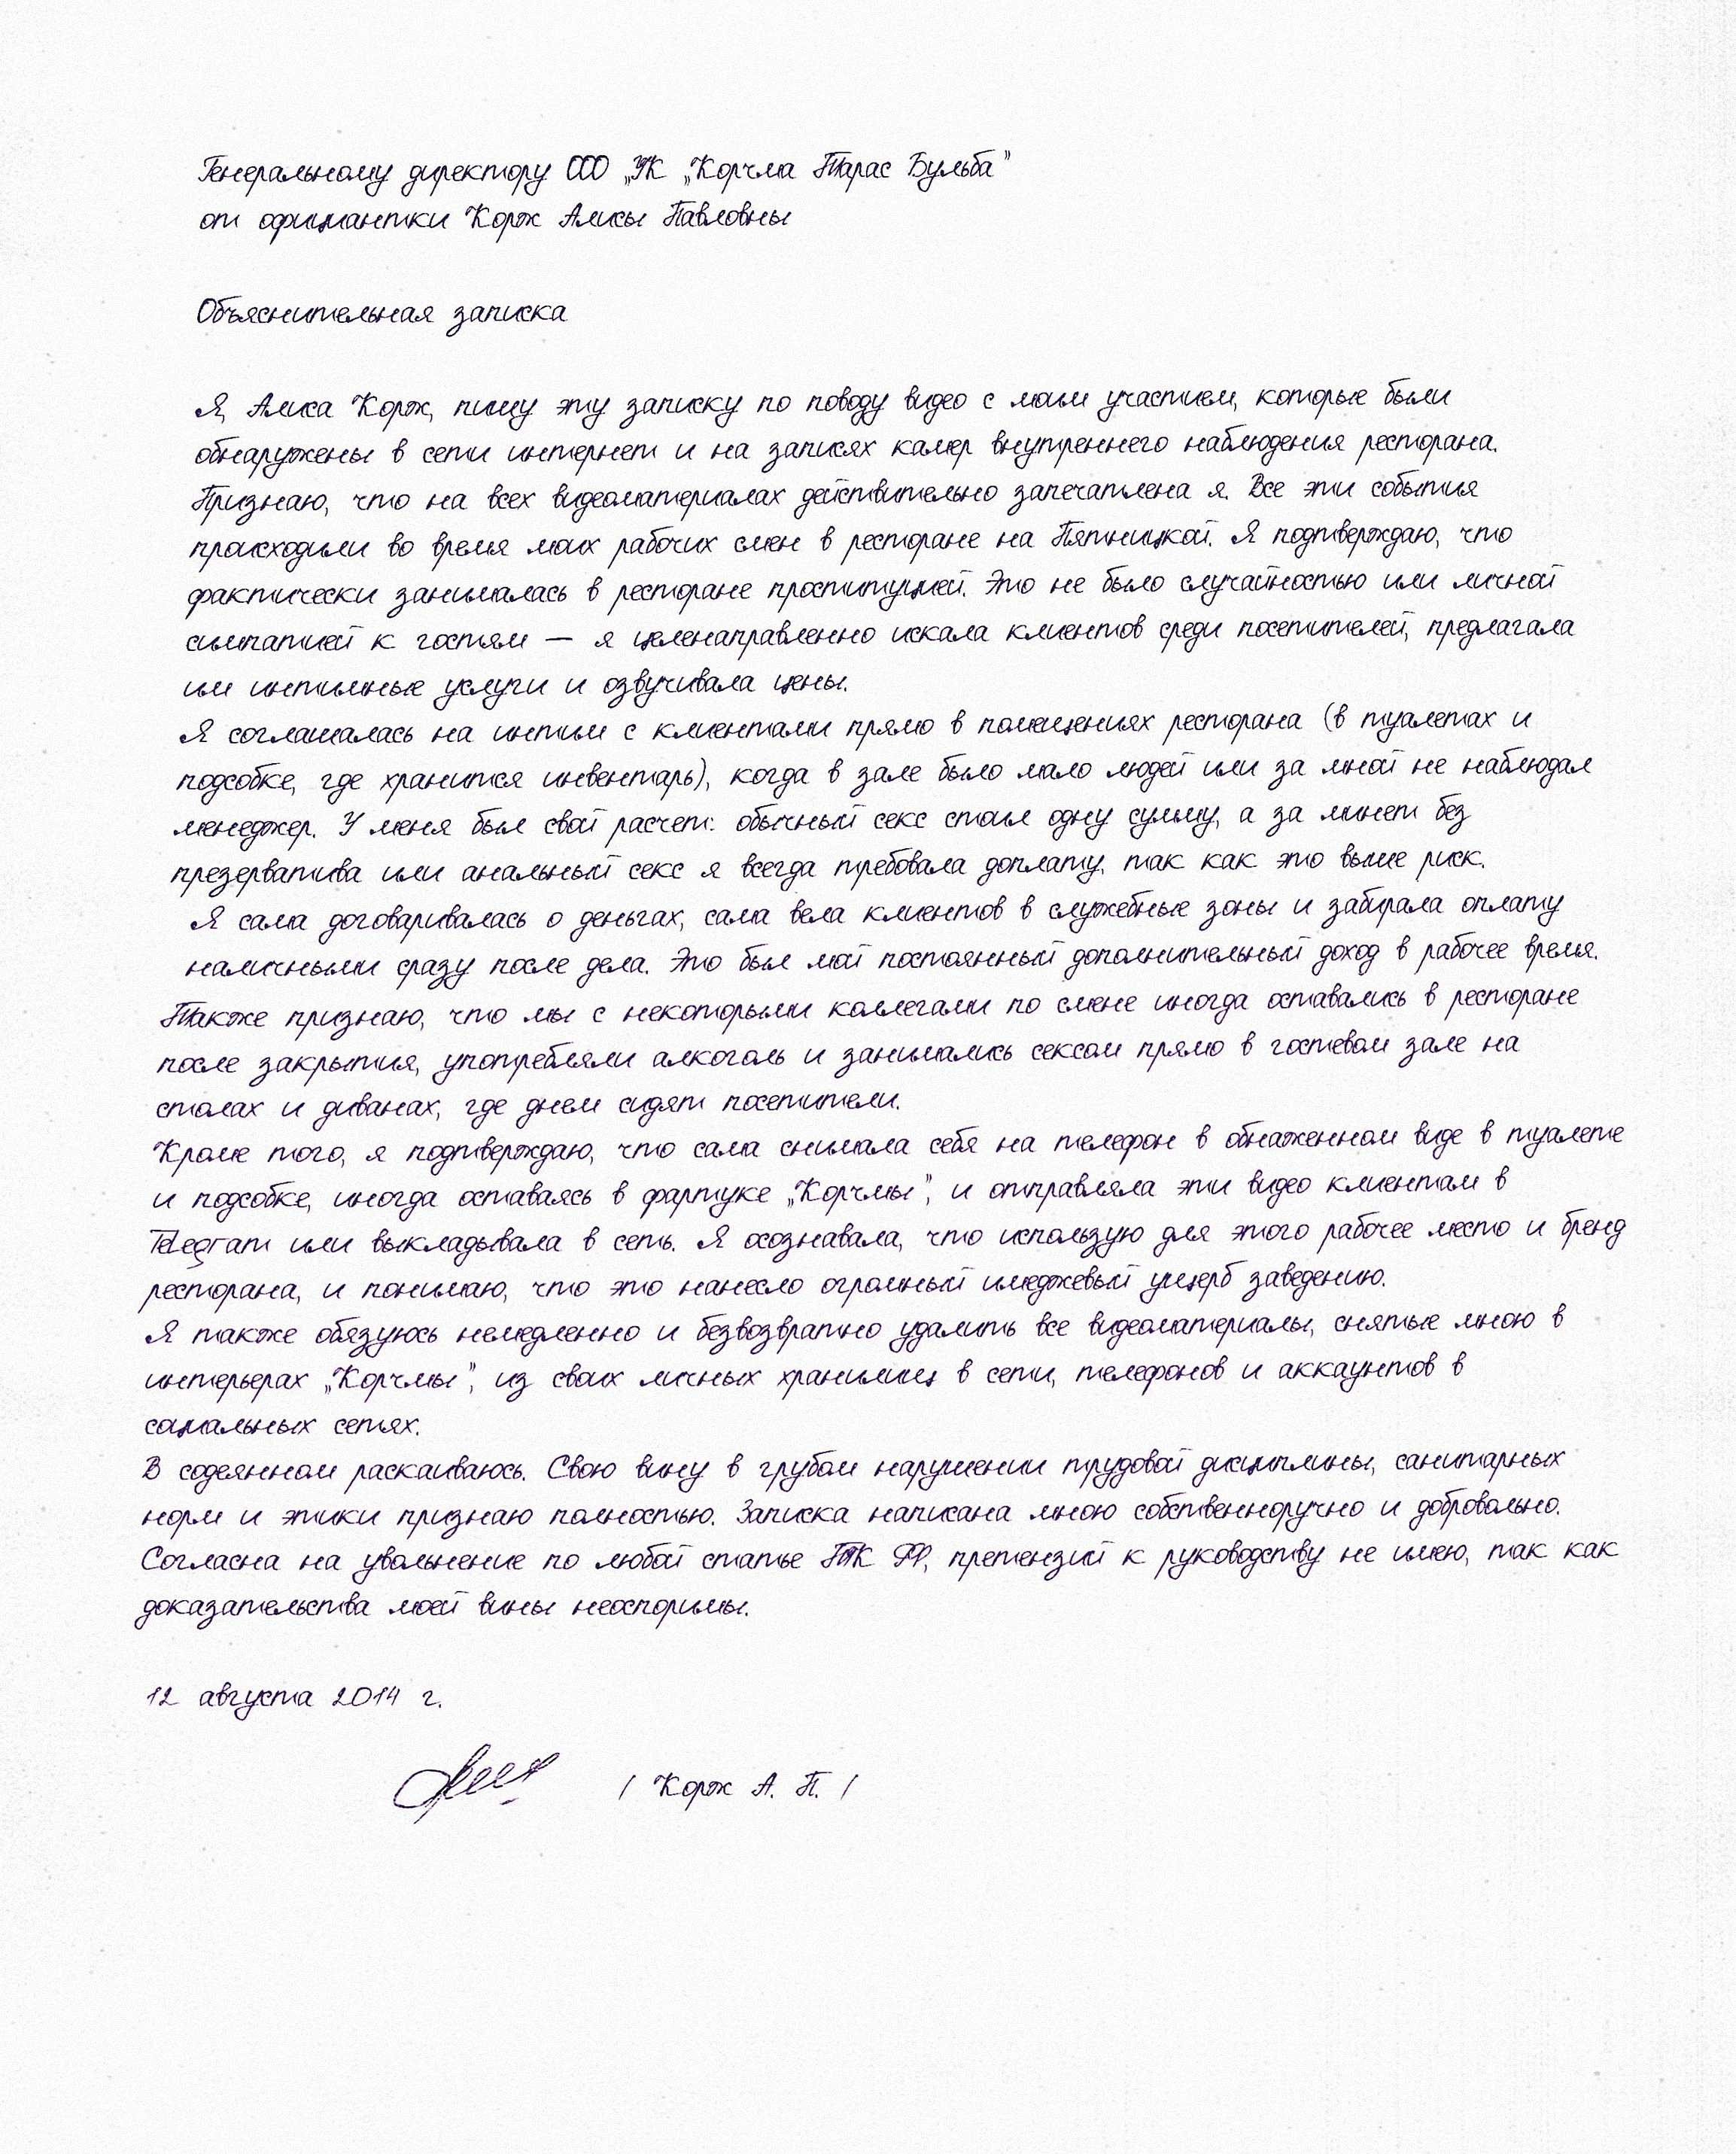 Генеральному директору ООО „УК „Корчма Тарас Бульба”
от официантки Корж Алисы Павловны
Объяснительная записка
Я, Алиса Корж, пишу эту записку по поводу видео с моим участием, которые были
обнаружены в сети интернет и на записях камер внутреннего наблюдения ресторана.
Признаю, что на всех видеоматериалах действительно запечатлена я. Все эти события
происходили во время моих рабочих смен в ресторане на Пятницкой. Я подтверждаю, что
фактически занималась в ресторане проституцией. Это не было случайностью или личной
симпатией к гостям — я целенаправленно искала клиентов среди посетителей, предлагала
им интимные услуги и озвучивала цены.
Я соглашалась на интим с клиентами прямо в помещениях ресторана (в туалетах и
подсобке, где хранится инвентарь), когда в зале было мало людей или за мной не наблюдал
менеджер. У меня был свой расчет: обычный секс стоил одну сумму, а за минет без
презерватива или анальный секс я всегда требовала доплату, так как это выше риск.
Я сама договаривалась о деньгах, сама вела клиентов в служебные зоны и забирала оплату
наличными сразу после дела. Это был мой постоянный дополнительный доход в рабочее время.
Также признаю, что мы с некоторыми коллегами по смене иногда оставались в ресторане
после закрытия, употребляли алкоголь и занимались сексом прямо в гостевом зале на
столах и диванах, где днем сидят посетители.
Кроме того, я подтверждаю, что сама снимала себя на телефон в обнаженном виде в туалете
и подсобке, иногда оставаясь в фартуке „Корчмы”, и отправляла эти видео клиентам в
Telegram или выкладывала в сеть. Я осознавала, что использую для этого рабочее место и бренд
ресторана, и понимаю, что это нанесло огромный имеджевый ущерб заведению.
Я также обязуюсь немедленно и безвозвратно удалить все видеоматериалы, снятые мною в
интерьерах „Корчмы”, из своих личных хранилищ в сети, телефонов и аккаунтов в
социальных сетях.
В содеянном раскаиваюсь. Свою вину в грубом нарушении трудовой дисциплины, санитарных
норм и этики признаю полностью. Записка написана мною собственноручно и добровольно.
Согласна на увольнение по любой статье ТК РФ, претензий к руководству не имею, так как
доказательства моей вины неоспоримы.
12 августа 2014 г.
/ Корж А. П. /